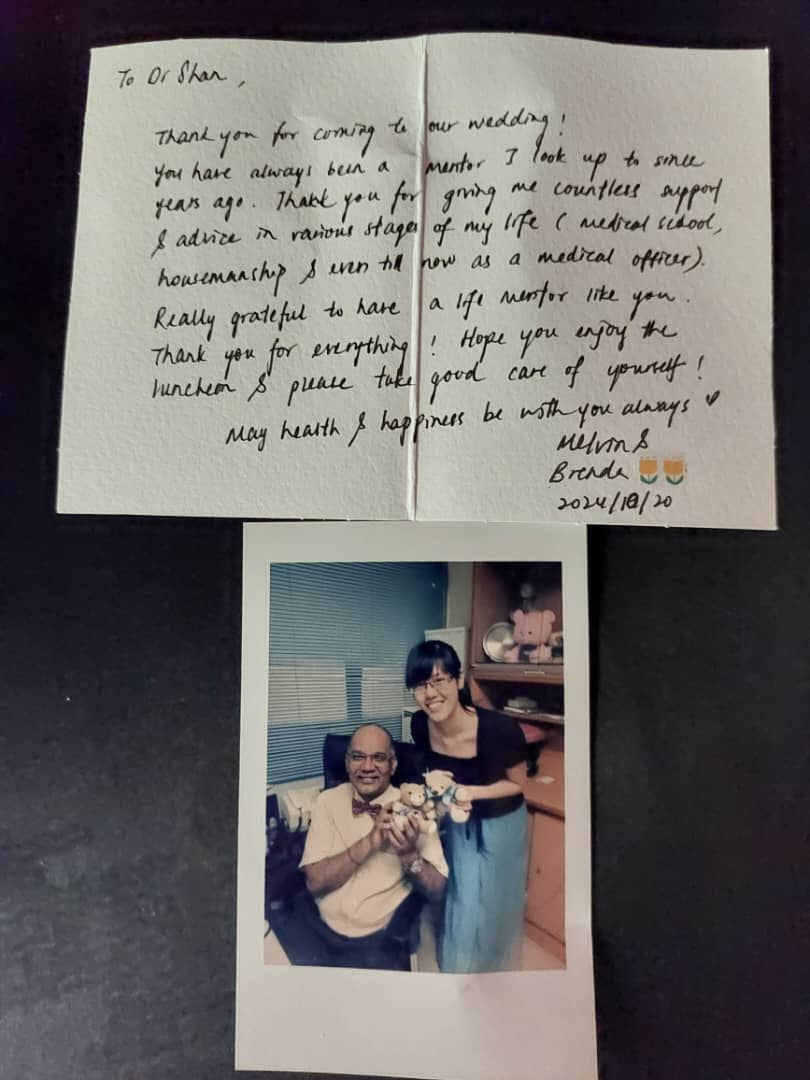 To Dr Shan,
Thank you for coming to our wedding!
You have always been a mentor I look up to since
years ago. Thank you for giving me countless support
& advice in various stages of my life (medical school,
housemanship & even till now as a medical officer).
Really grateful to have a life mentor like you.
Thank you for everything! Hope you enjoy the
luncheon & please take good care of yourself!
May health & happiness be with you always ♥
Melvin &
Brenda
2024/10/20